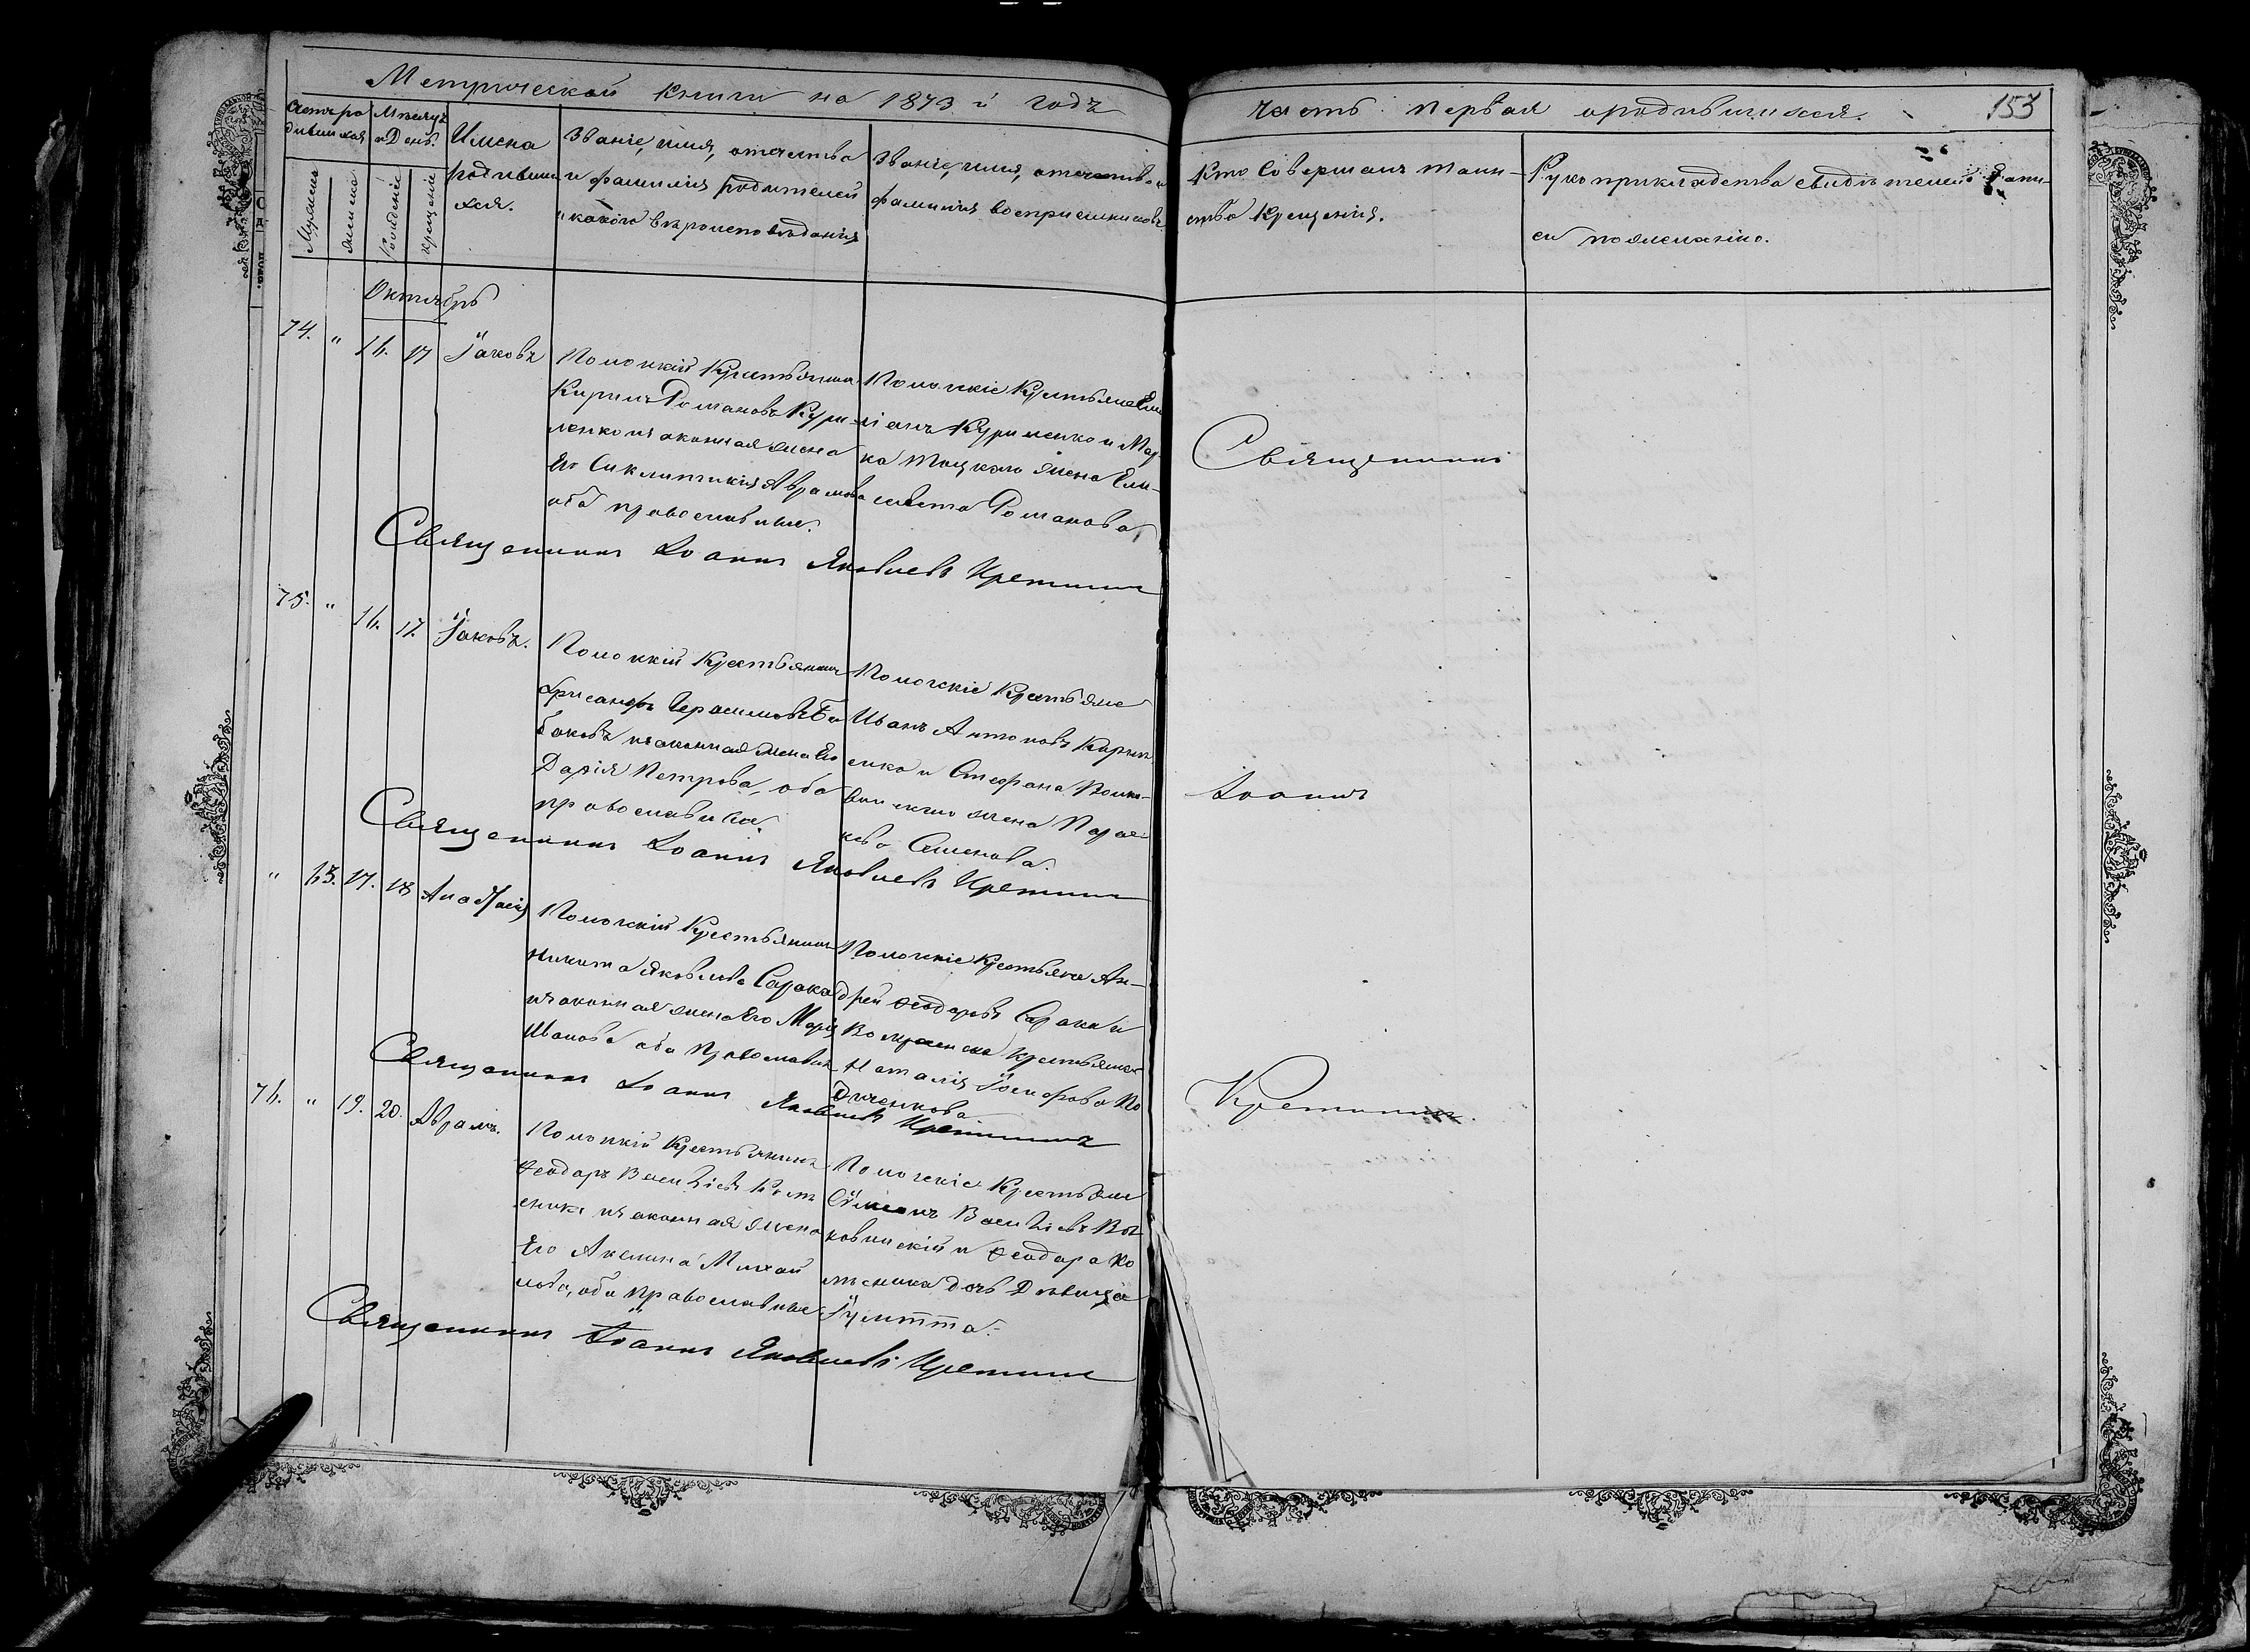 Метрической книги на 1873й годъ
часть первая о родившихся.
153
Счетъ ро
дившихся
Мѣсяцъ
и День.
Имена
родивши
хся.
Званіе, имя, отчество
и фамилія родителей
и какой вѣроисповѣданія
Званіе, имя, отчество и
фамилія воспріемниковъ
Кто совершалъ таин-
ство крещенія.
Рукоприкладства свидѣтелей запи-
си по желанію.
Мужеска
женска
Рожденіе
крещеніе
Октябрь
74. " 16. 17 Іаковъ
Пологскій Крестьянинъ
Кирилъ Романовъ Кури
ленко и законная жена
Его Синклитикія Аврамова
оба православные.
Пологскіе Крестьяне Еми
ліанъ Куриленко и Мар
ка жена Ели-
савета Романова
Священникъ Іоаннъ Яковлевъ Кретининъ
75. " 16. 17. Іаковъ.
Пологскій Крестьянинъ
Хрисанфъ Герасимовъ Ба
баковъ и законная жена Его
Дарія Петрова, оба
православные.
Пологскіе Крестьяне
Иванъ Антоновъ
енко и Стефана Волко-
винскаго жена Парас
кева Семенова.
Священникъ Іоаннъ Яковлевъ Кретининъ
" 63. 17. 18 Анастасія
Пологскій Крестьянинъ
Никита Яковлевъ Сарака
и законная жена Его Марія
Иванова оба Православные
Пологскіе Крестьяне Ан-
дрей Феодоровъ Сарака и
крестьянка
Наталія Іосифова По
дченкова
Священникъ Іоаннъ Яковлевъ Кретининъ
76. " 19. 20. Аврамъ.
Пологскій Крестьянинъ
Феодоръ Василіевъ Колѣ
сникъ и законная жена
Его Акелина Михай
лова, оба православные
Пологскіе Крестьяне
Сѵмеонъ Василіевъ Вол
ковинскій и Феодора Ко
лѣсника дочь Дѣвица
Іулитта.
Священникъ Іоаннъ Яковлевъ Кретининъ
Священникъ
Іоаннъ
Кретининъ